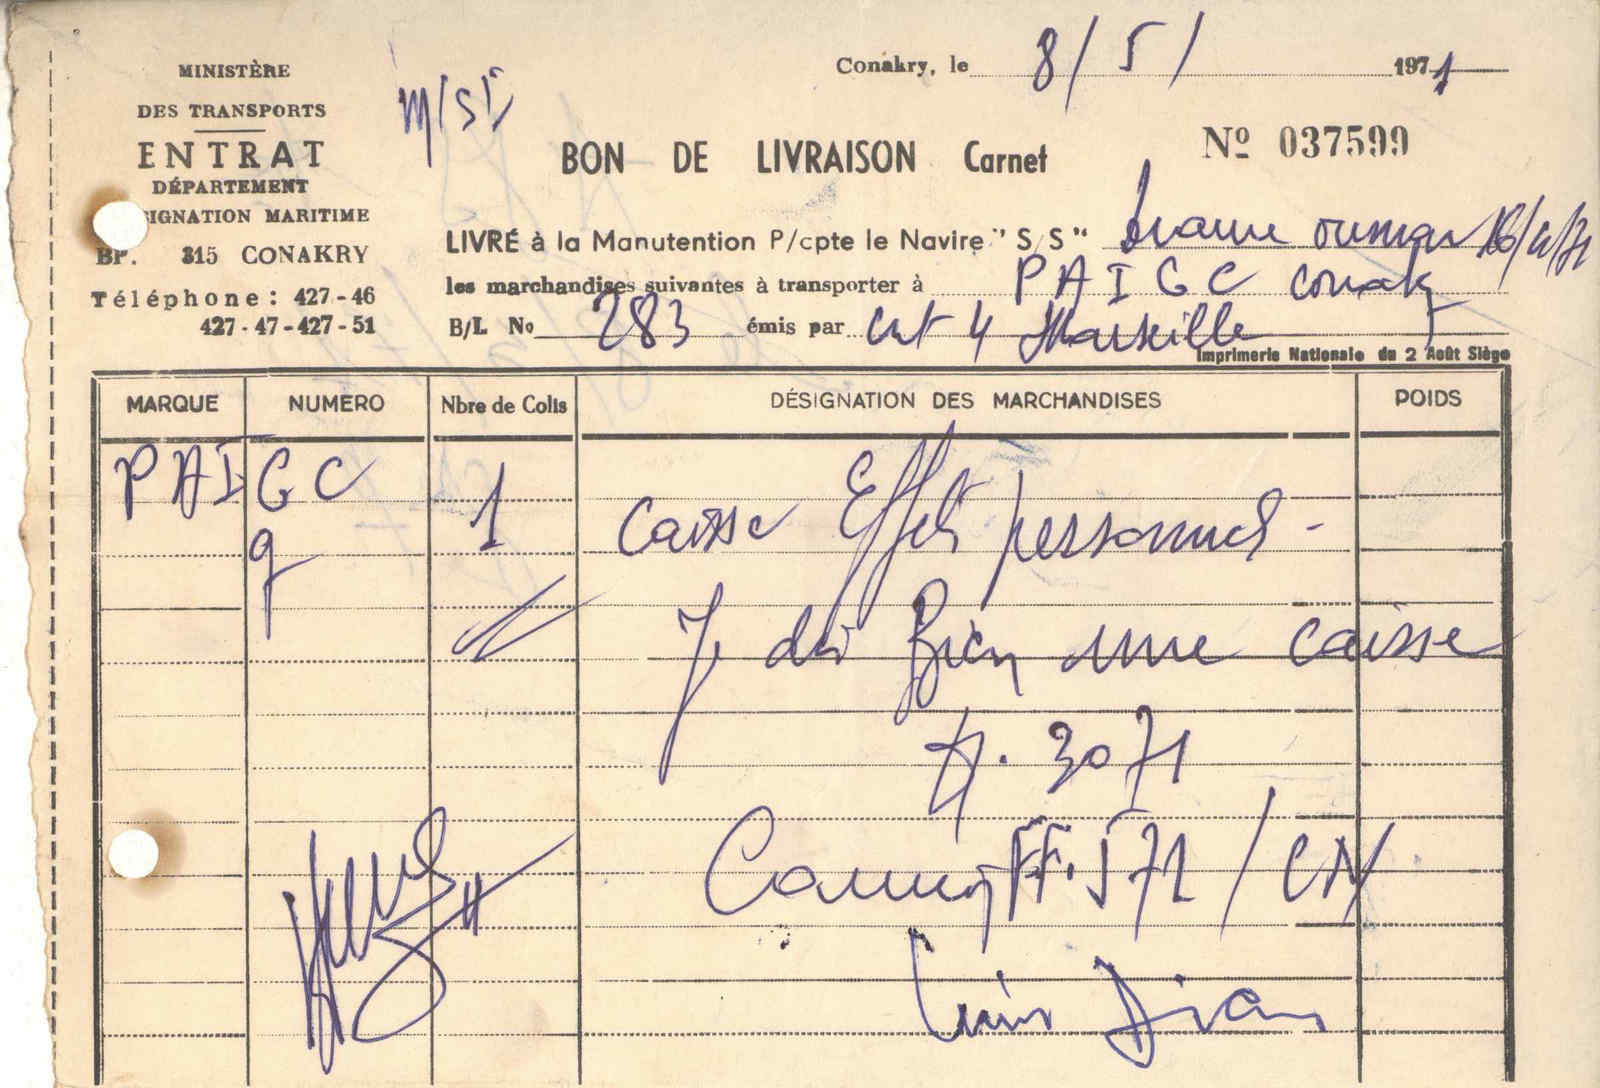 MINISTÈRE
DES TRANSPORTS
ENTRAT
DÉPARTEMENT
SIGNATION MARITIME
BP. 315 CONAKRY
Téléphone : 427-46
427-47-427-51
Conakry, le 8/5/ 1971
BON DE LIVRAISON Carnet
Nº 037599
LIVRÉ à la Manutention P/cpte le Navire "S/S" oumar
les marchandises suivantes à transporter à PAIGC Conaky
B/L No 283 émis par Marseille
Imprimerie Nationale du 2 Août Siège
MARQUE NUMERO Nbre de Colis DÉSIGNATION DES MARCHANDISES POIDS
PAIGC 1 Caisse Effets personnels -
9
Je dis Bien une caisse
3071
Camion FF.571/CN